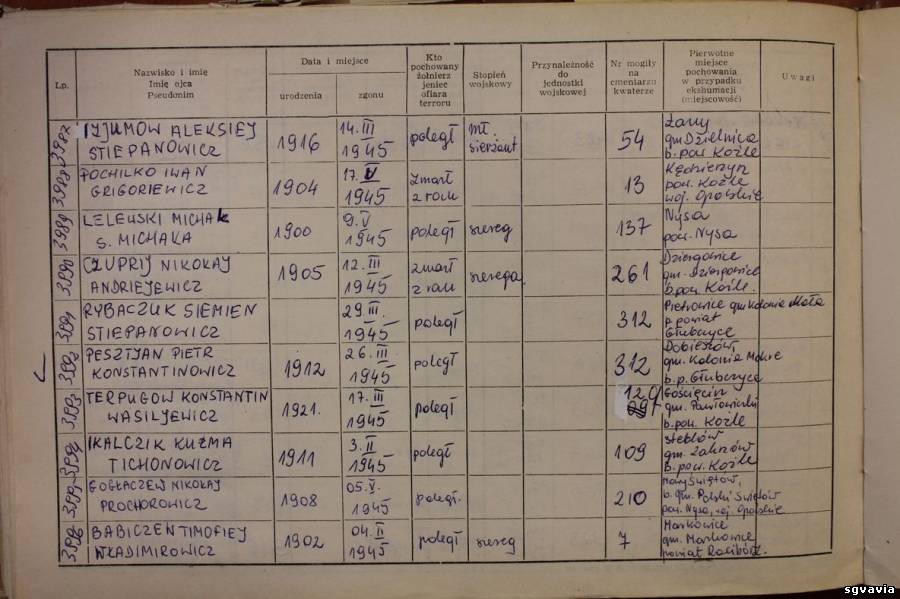 Lp.
Nazwisko i imię
Imię ojca
Pseudonim
Data i miejsce
urodzenia
zgonu
Kto
pochowany
żołnierz
jeniec
ofiara
terroru
Stopień
wojskowy
Przynależność
do
jednostki
wojskowej
Nr mogiły
na
cmentarzu
kwaterze
Pierwotne
miejsce
pochowania
w przypadku
ekshumacji
(miejscowość)
Uwagi
IZJUMOW ALEKSIEJ
STIEPANOWICZ
1916
14.III
1945
poległ
mł.
sierżant
54
gm Dzielnica
b. pow Koźle
POCHILKO IWAN
GRIGORIEWICZ
1904
17.V
1945
zmarł
z ran
13
Kędzierzyn
pow. Koźle
woj. Opolskie
LELEWSKI MICHAŁ
S. MICHAŁA
1900
9.V
1945
poległ
szereg
137
Nysa
pow. Nysa
CZUPRIJ NIKOŁAJ
ANDRIEJEWICZ
1905
12.III
1945
zmarł
z ran
261
b. pow Koźle.
RYBACZUK SIEMIEN
STIEPANOWICZ
29.III.
1945
poległ
312
Pietrowice gm Kolonia Mała
p. powiat
Głubczyce
PESZTJAN PIETR
KONSTANTINOWICZ
1912
26.III
1945
poległ
312
gm. Kolonia
b. p. Głubczyce
TERPUGOW KONSTANTIN
WASILJEWICZ
1921.
17.III
1945
poległ
Gościęcin
gm. Pawłowiczki
b. pow. Koźle
IKALCZIK KUZMA
TICHONOWICZ
1911
3.II
1945
poległ
109
Steblów
gm.
b. pow. Koźle
GOGŁACZEW NIKOŁAJ
PROCHOROWICZ
1908
05.V.
1945
poległ.
210
b. gm. Polski Świętów
pow. Nysa, woj. Opolskie
BABICZEN TIMOFIEJ
WŁADIMIROWICZ
1902
04.II
1945
poległ
szereg
7
Markowice
gm. Markowice
powiat Racibórz.
sgvavia